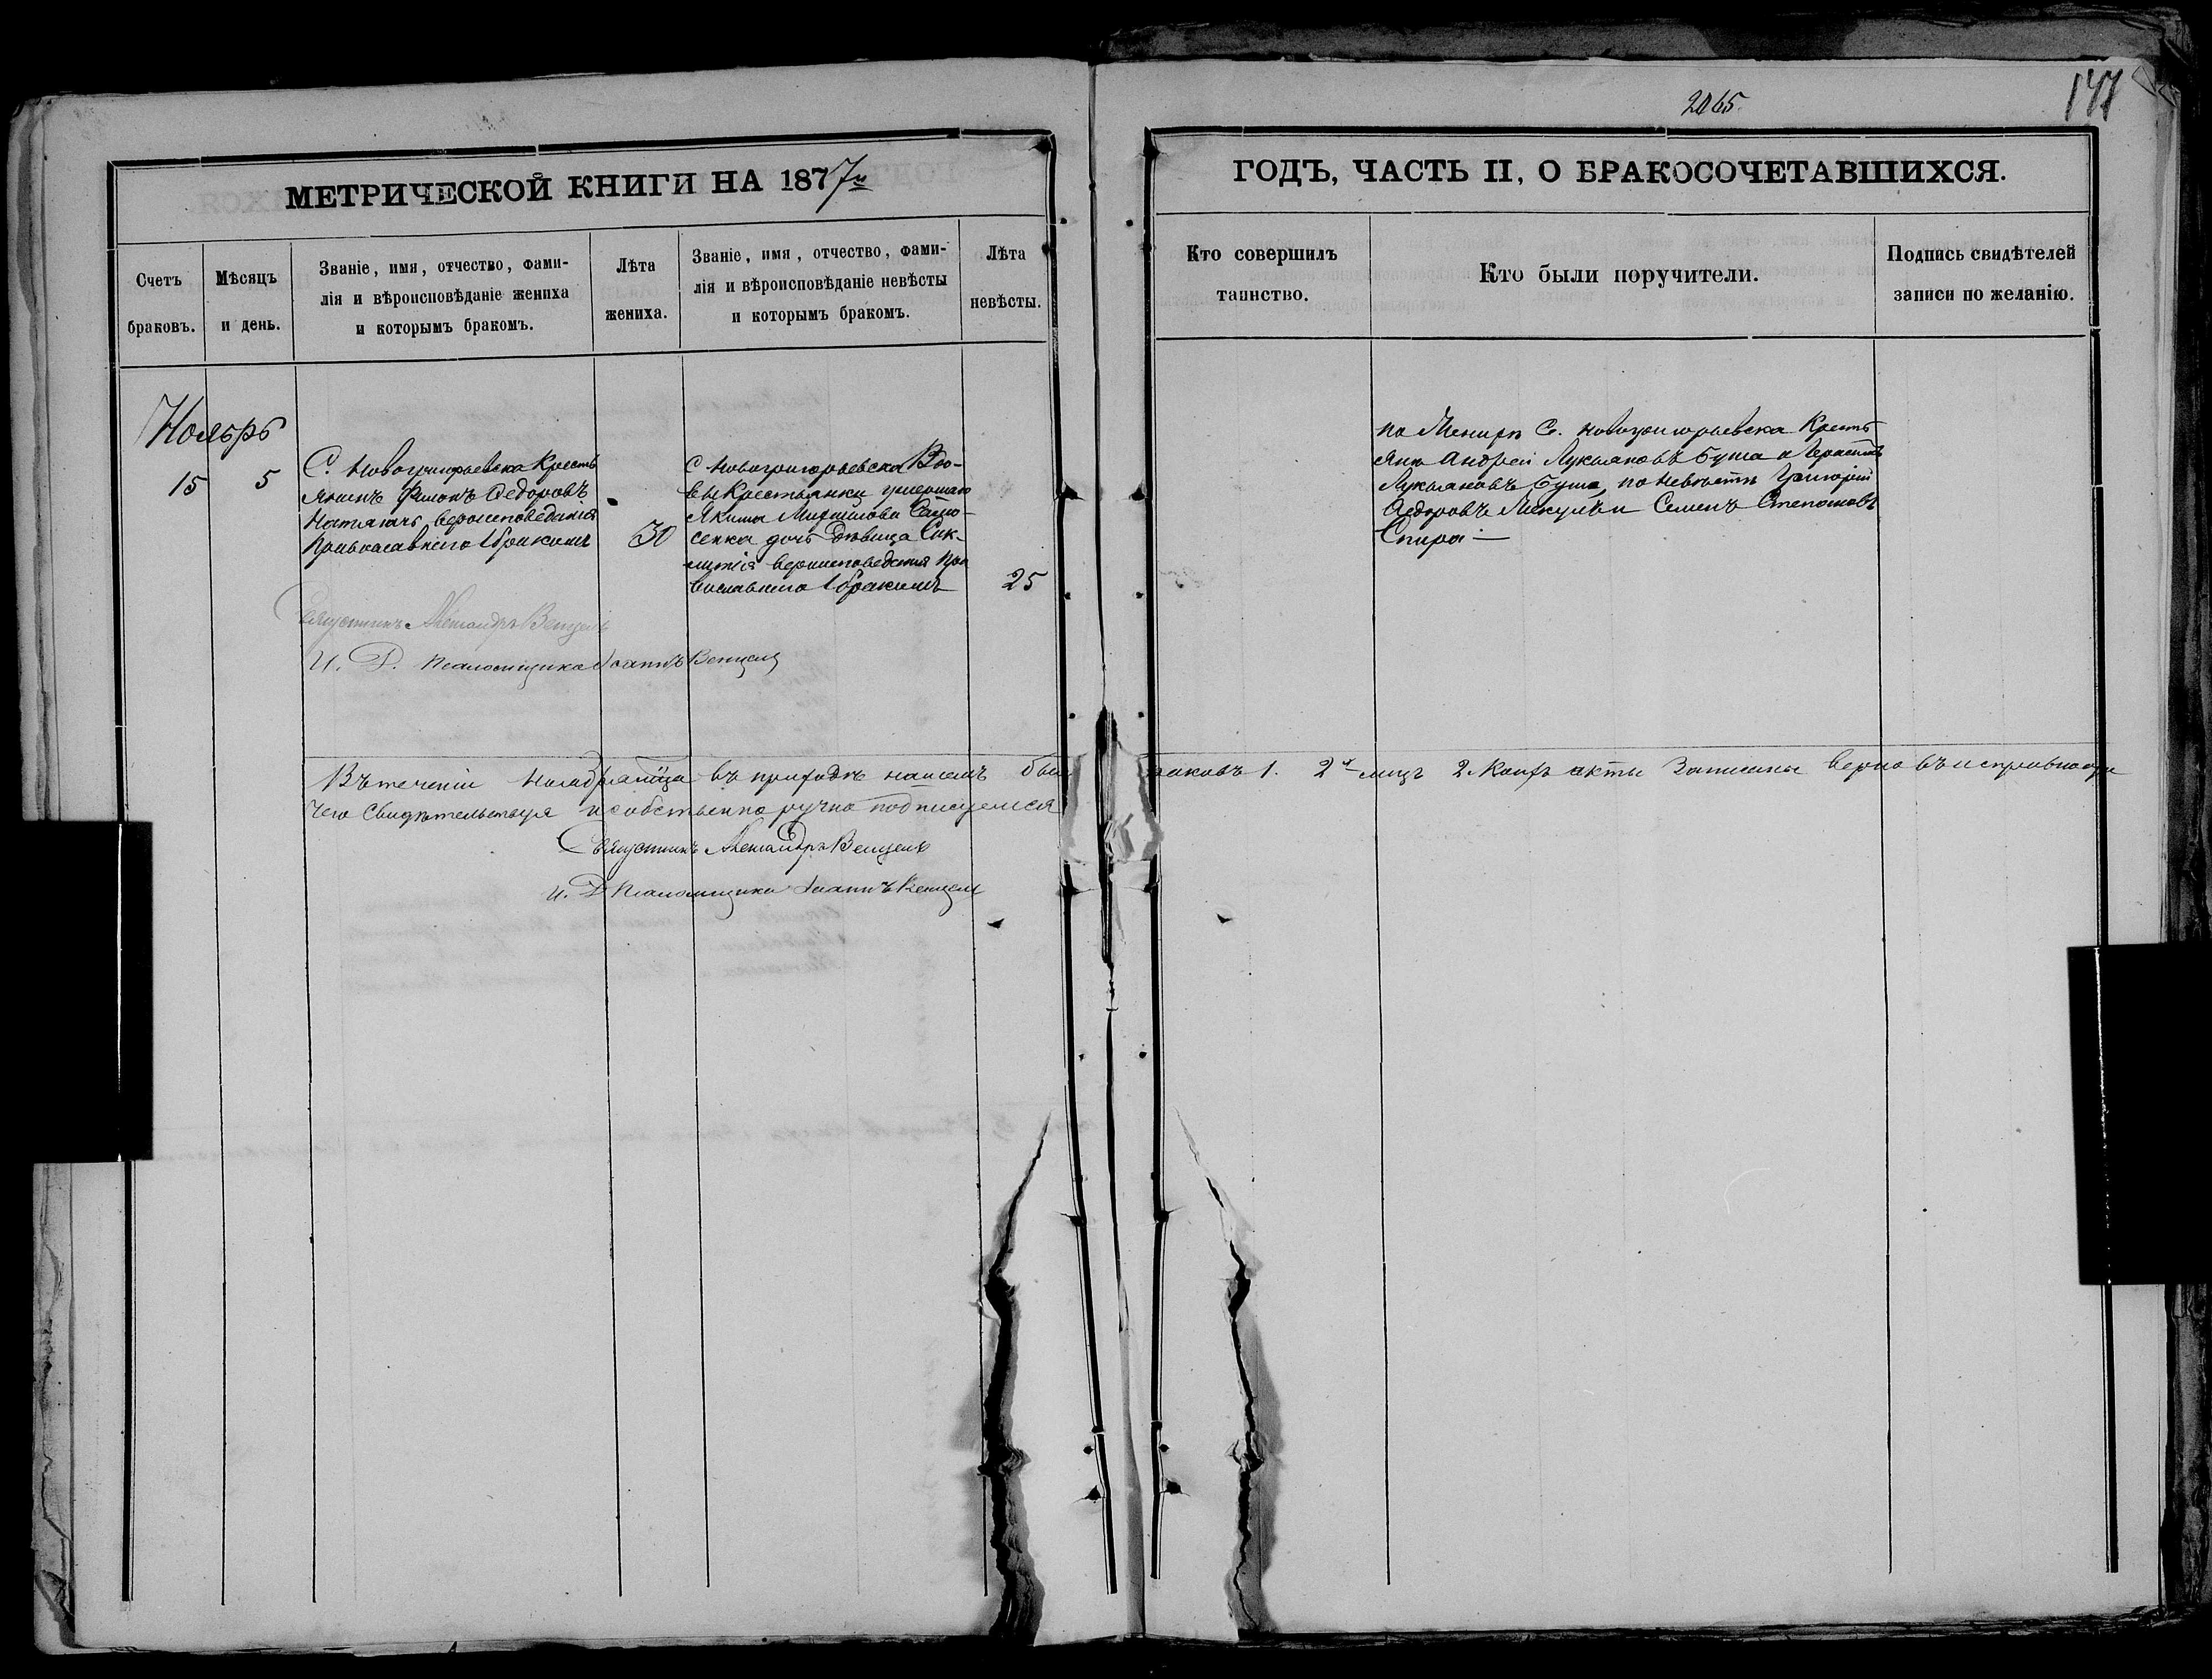 2065.
147
МЕТРИЧЕСКОЙ КНИГИ НА 1877й
ГОДЪ, ЧАСТЬ II, О БРАКОСОЧЕТАВШИХСЯ.
Счетъ
браковъ.
Мѣсяцъ
и день.
Званіе, имя, отчество, фами-
лія и вѣроисповѣданіе жениха
и которымъ бракомъ.
Лѣта
жениха.
Званіе, имя, отчество, фами-
лія и вѣроисповѣданіе невѣсты
и которымъ бракомъ.
Лѣта
невѣсты.
Кто совершилъ
таинство.
Кто были поручители.
Подпись свидѣтелей
записи по желанію.
Ноябрь
15
5
С. Новогригорьевска Кресть
янинъ Филонъ Федоровъ
вероисповеданія
Православнаго 1 бракомъ
30
С Новогригорьевска Вдо-
вы Крестьянки умершаго
Якима
сенка дочь Дѣвица Сик-
литія вероисповеданія Пра
вославнаго 1 бракомъ
25
по Женихѣ С. Новогригорьевска Кресть
яне Андрей Лукьяновъ Буша и Герасимъ
Лукьяновъ Буша, по невѣсте Григорій
Федоровъ и Семенъ Степановъ
Спира —
Священникъ Александръ Венцель
И. Д. Псаломщика Іоаннъ Венцель
Въ теченіи Ноября мѣсяца въ приходѣ нашемъ было браковъ 1. 2х лицъ акты Записаны верно въ исправности
чего свидѣтельствуя и собственно ручно подписуемся
Священникъ Александръ Венцель
И. Д. Псаломщика Іоаннъ Венцель